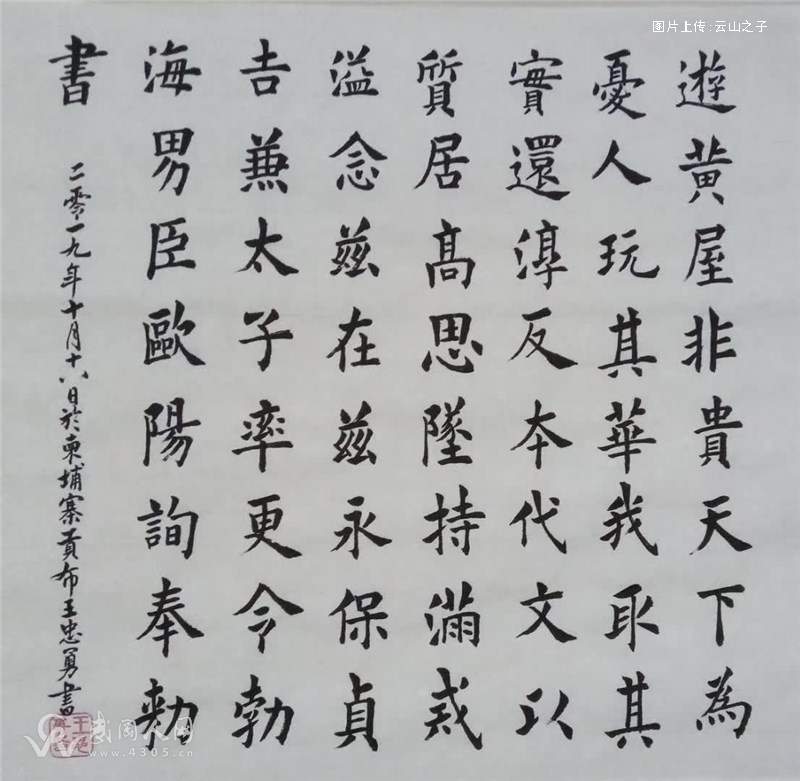 图片上传:云山之子
遊黄屋非貴天下為
憂人玩其華我取其
實還淳反本代文以
質居髙思墜持滿戒
溢念兹在兹永保貞
吉兼太子率更令勃
海男臣歐陽詢奉勅
書
二零一九年十月十八日於柬埔寨貢布王忠勇書
武冈人网
www.4305.cn